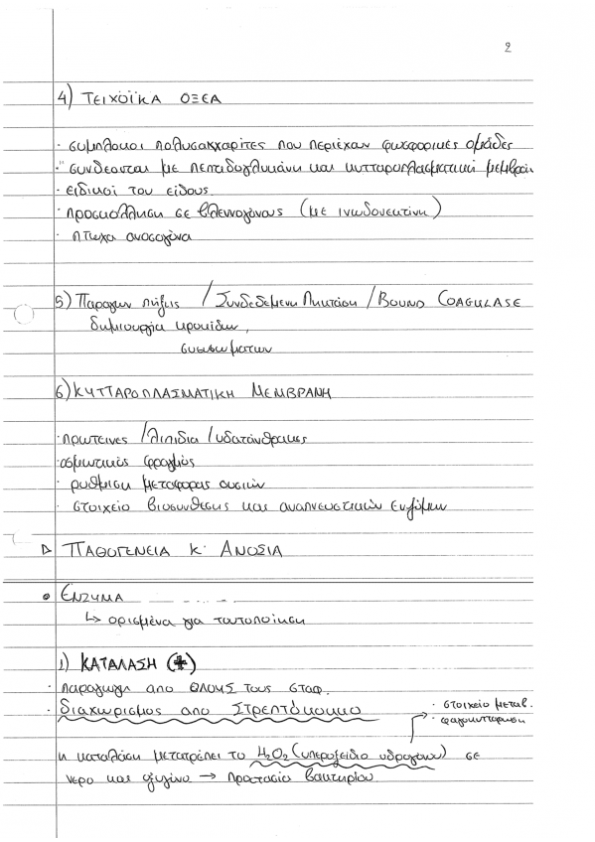 2
4) ΤΕΙΧΟΪΚΑ ΟΞΕΑ
· συμπλοκοι πολυσακχαρίτες που περιέχουν φωσφορικές ομάδες
· συνδεονται με πεπτιδογλυκάνη και κυτταροπλασματική μεμβράν
· ειδικοί του είδους.
· προσκόλληση σε βλεννογόνους (με ινωδονεκτίνη)
· πτωχα ανοσογόνα
5) Παραγων πήξεις / Συνδεδεμενη Πηκτάση / BOUND COAGULASE
δημιουργία κροκίδων,
συσσωματων
6) ΚΥΤΤΑΡΟΠΛΑΣΜΑΤΙΚΗ ΜΕΜΒΡΑΝΗ
· πρωτεινες / λιπιδια / υδατάνθρακες
· οσμωτικός φραγμός
· ρυθμιση μεταφορας ουσιών
· στοιχείο βιοσυνθεσης και αναπνευστικών ενζύμων
▷ ΠΑΘΟΓΕΝΕΙΑ Κ' ΑΝΟΣΙΑ
• ΕΝΖΥΜΑ
↳ ορισμένα για ταυτοποίηση
1) ΚΑΤΑΛΑΣΗ (+)
· παραγωγη απο ΟΛΟΥΣ τους σταφ.
· διαχωρισμος απο ΣΤΡΕΠΤΟΚΟΚΚΟ
· στοιχείο μεταβ.
· φαγοκυτταρωση
η καταλάση μετατρέπει το H₂O₂ (υπεροξείδιο υδρογόνου) σε
νερο και οξυγόνο → προστασία βακτηρίου.